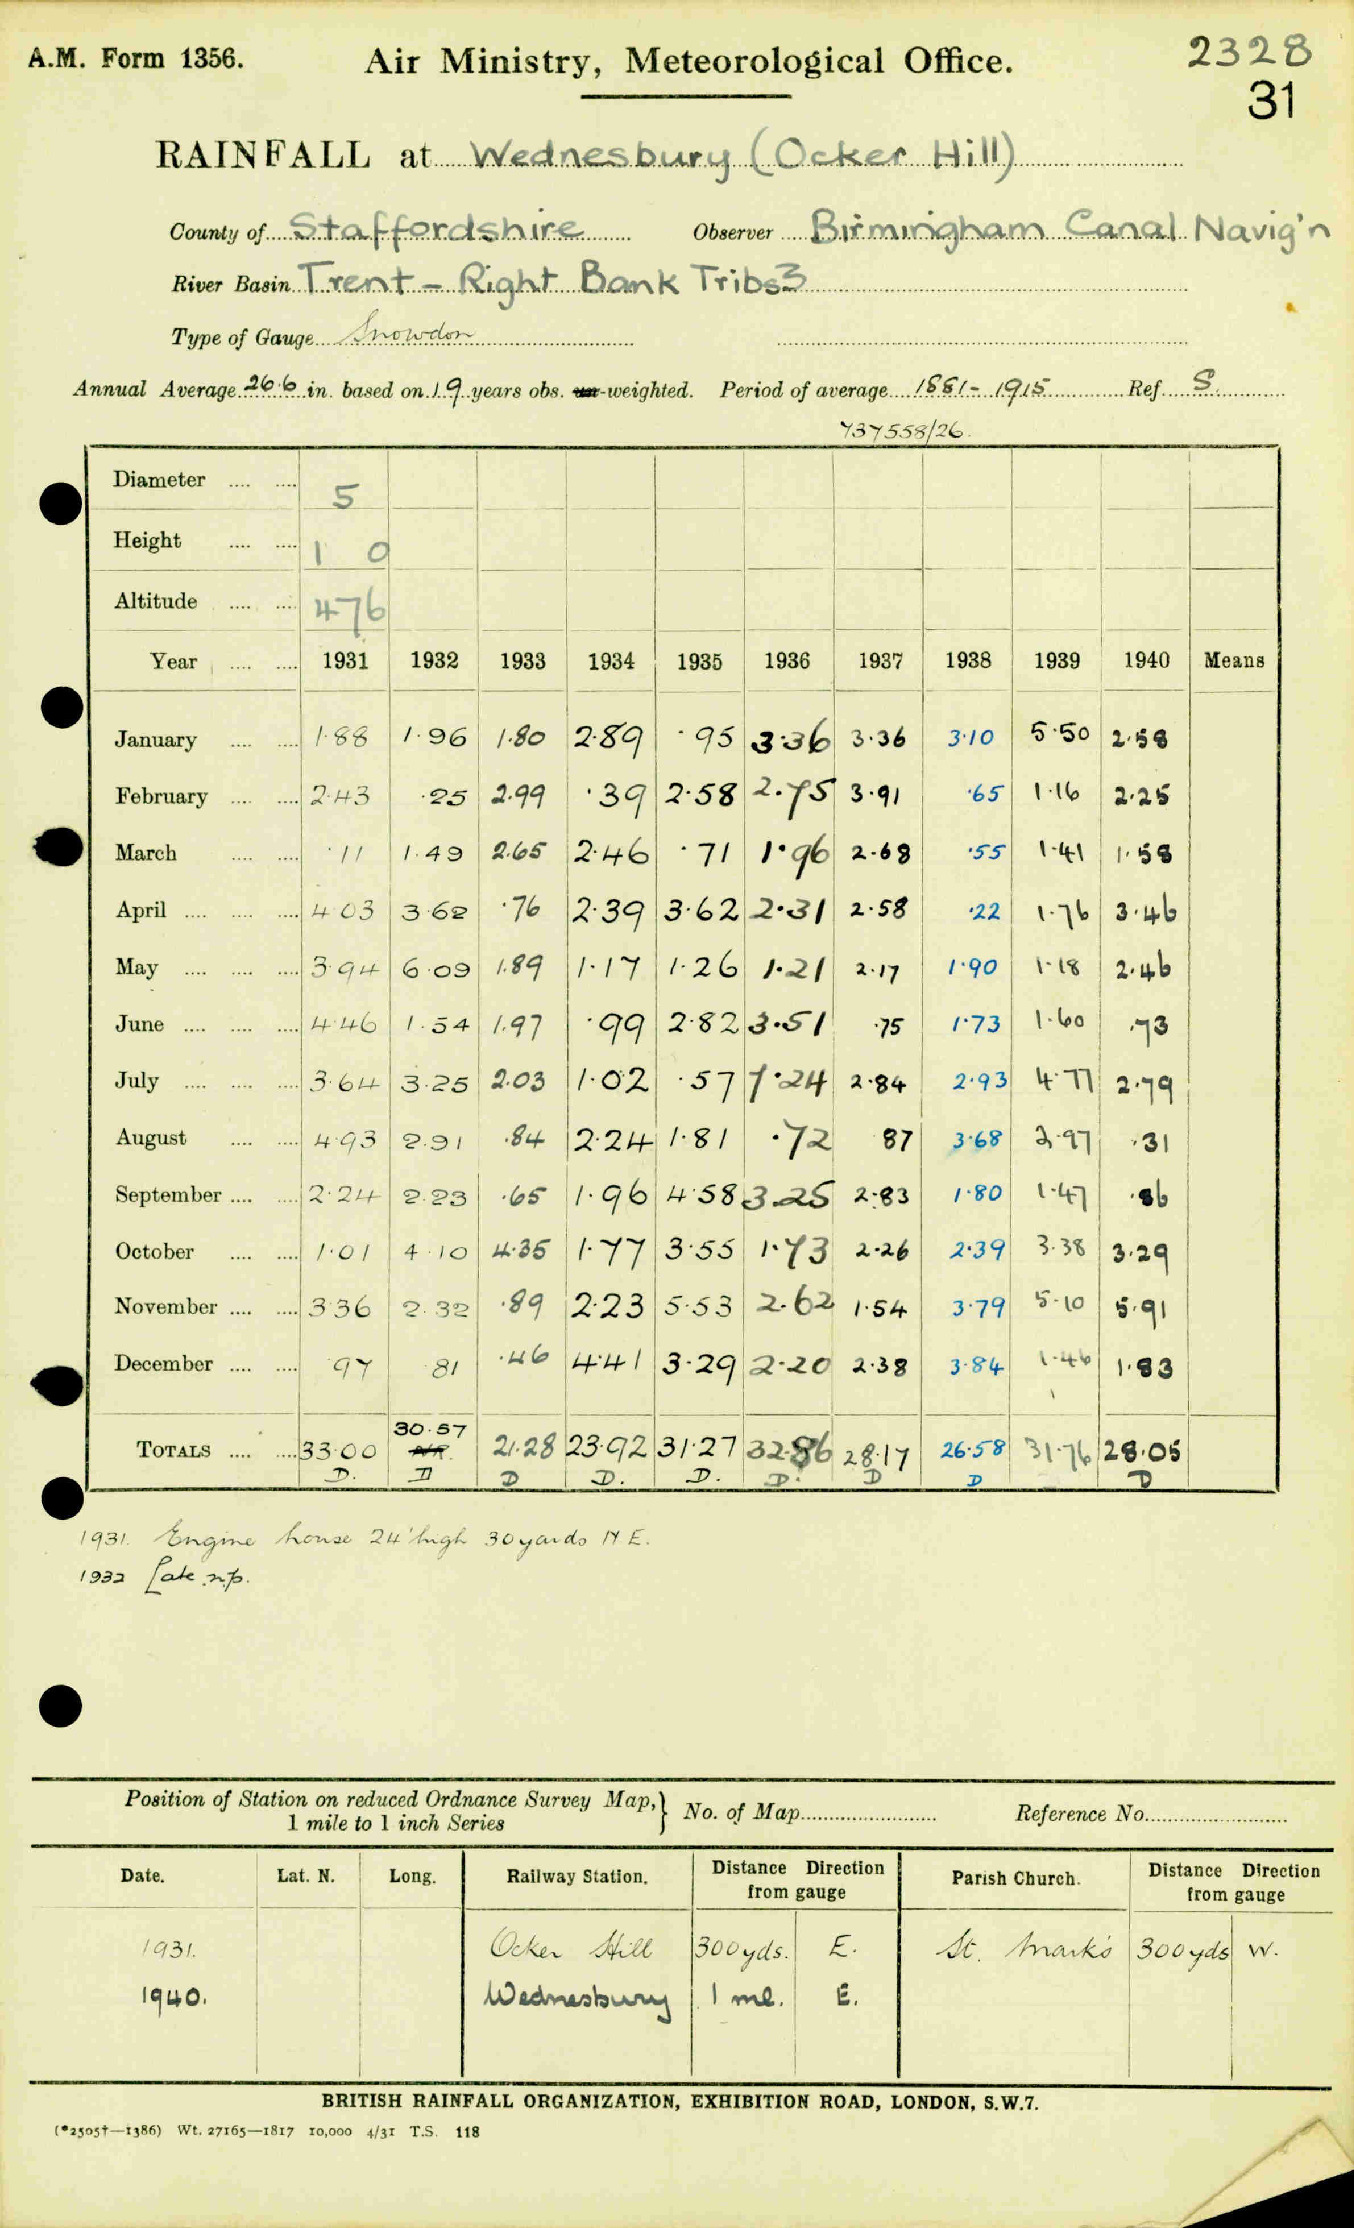 A.M. Form 1356. Air Ministry, Meteorological Office. 2328
31
RAINFALL at Wednesbury (Ocker Hill)
County of Staffordshire Observer Birmingham Canal Navig'n
River Basin Trent - Right Bank Tribs 3
Type of Gauge Snowdon
Annual Average 26·6 in. based on 19 years obs. un-weighted. Period of average 1881-1915 Ref. S.
737558/26.
Diameter .... .... 5
Height .... .... 1 0
Altitude .... .... 476
Year .... .... 1931 1932 1933 1934 1935 1936 1937 1938 1939 1940 Means
January .... .... 1·88 1·96 1·80 2·89 ·95 3·36 3·36 3·10 5·50 2·58
February .... .... 2·43 ·25 2·99 ·39 2·58 2·75 3·91 ·65 1·16 2·25
March .... .... ·11 1·49 2·65 2·46 ·71 1·96 2·68 ·55 1·41 1·58
April .... .... .... 4·03 3·62 ·76 2·39 3·62 2·31 2·58 ·22 1·76 3·46
May .... .... .... 3·94 6·09 1·89 1·17 1·26 1·21 2·17 1·90 1·18 2·46
June .... .... .... 4·46 1·54 1·97 ·99 2·82 3·51 ·75 1·73 1·60 ·73
July .... .... .... 3·64 3·25 2·03 1·02 ·57 7·24 2·84 2·93 4·77 2·79
August .... .... 4·93 2·91 ·84 2·24 1·81 ·72 87 3·68 2·97 ·31
September .... .... 2·24 2·23 ·65 1·96 4·58 3·25 2·83 1·80 1·47 ·86
October .... .... 1·01 4·10 4·35 1·77 3·55 1·73 2·26 2·39 3·38 3·29
November .... .... 3·36 2·32 ·89 2·23 5·53 2·62 1·54 3·79 5·10 5·91
December .... .... 97 81 ·46 4·41 3·29 2·20 2·38 3·84 1·46 1·83
30·57
TOTALS .... .... 33·00 21·28 23·92 31·27 32·86 28·17 26·58 31·76 28·05
D. D D D. D. D. D D D
1931. Engine house 24' high 30 yards N E.
1932 Late n.p.
Position of Station on reduced Ordnance Survey Map, } No. of Map Reference No.
1 mile to 1 inch Series
Date. Lat. N. Long. Railway Station. Distance Direction from gauge Parish Church. Distance Direction from gauge
1931. Ocker Hill 300 yds. E. St. Mark's 300 yds W.
1940. Wednesbury 1 ml. E.
BRITISH RAINFALL ORGANIZATION, EXHIBITION ROAD, LONDON, S.W.7.
(*2505†—1386) Wt. 27165—1817 10,000 4/31 T.S. 118